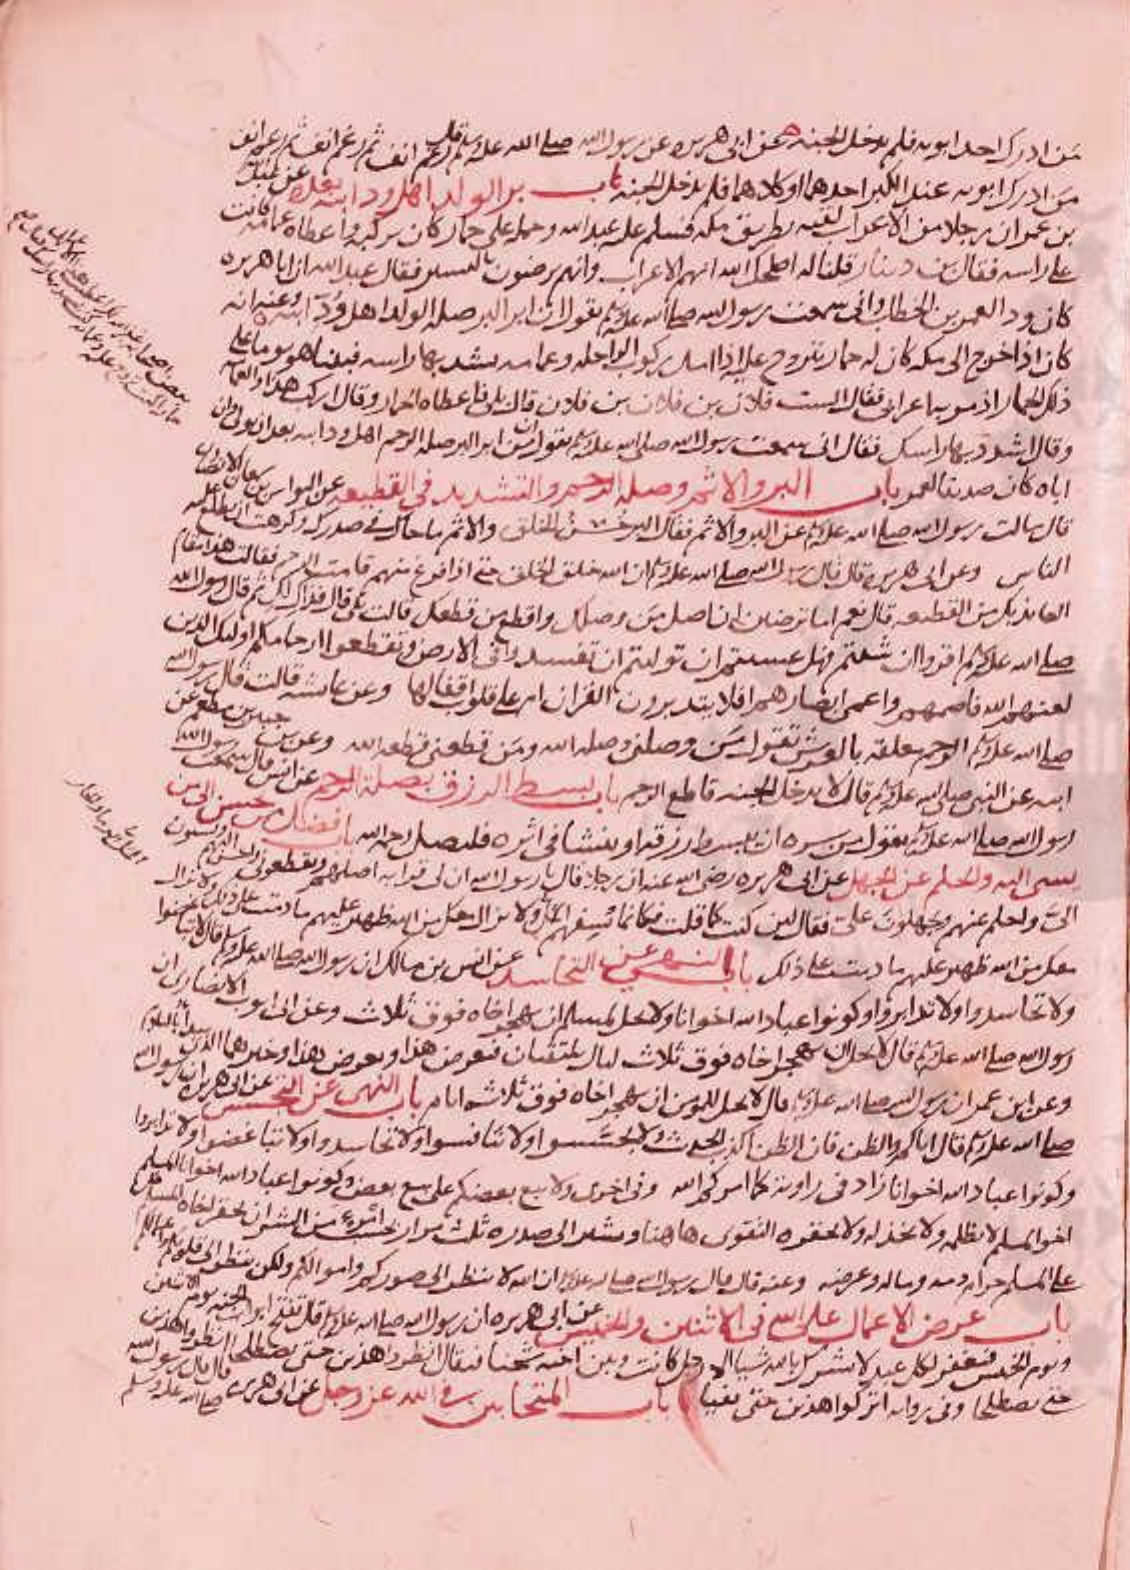 من ادرك احد ابويه فلم يدخل الجنة عن ابي هريرة عن رسول الله صلى الله عليه وسلم قال رغم انف ثم رغم انف ثم رغم انف
من ادرك ابويه عند الكبر احدهما او كلاهما فلم يدخل الجنة باب بر الولد اهل ود ابيه بعده عن عبد الله
بن عمر ان رجلا من الاعراب لقيه بطريق مكة فسلم عليه عبد الله وحمله على حمار كان يركبه واعطاه عمامة كانت
على راسه فقال بن دينار قلنا له اصلحك الله انهم الاعراب وانهم يرضون باليسير فقال عبد الله ان ابا هذا
كان ودا لعمر بن الخطاب واني سمعت رسول الله صلى الله عليه وسلم يقول ان ابر البر صلة الولد اهل ود ابيه وعنه انه
كان اذا خرج الى مكة كان له حمار يتروح عليه اذا مل ركوب الراحلة وعمامة يشد بها راسه فبينا هو يوما على
ذلك الحمار اذ مر به اعرابي فقال الست فلان بن فلان بن فلان قال بلى فاعطاه الحمار وقال اركب هذا والعمامة
وقال اشدد بها راسك فقال اني سمعت رسول الله صلى الله عليه وسلم يقول ان من ابر البر صلة الرجل اهل ود ابيه بعد ان يولي وان
اباه كان صديقا لعمر باب البر والاثم وصلة الرحم والتشديد في القطيعة عن النواس بن سمعان الانصاري
قال سالت رسول الله صلى الله عليه وسلم عن البر والاثم فقال البر حسن الخلق والاثم ما حاك في صدرك وكرهت ان يطلع عليه
الناس وعن ابي هريرة قال قال رسول الله صلى الله عليه وسلم ان الله خلق الخلق حتى اذا فرغ منهم قامت الرحم فقالت هذا مقام
العائذ بك من القطيعة قال نعم اما ترضين ان اصل من وصلك واقطع من قطعك قالت بلى قال فذاك لك ثم قال رسول الله
صلى الله عليه وسلم اقرؤا ان شئتم فهل عسيتم ان توليتم ان تفسدوا في الارض وتقطعوا ارحامكم اولئك الذين
لعنهم الله فاصمهم واعمى ابصارهم افلا يتدبرون القران ام على قلوب اقفالها وعن عائشة قالت قال رسول الله
صلى الله عليه وسلم الرحم معلقة بالعرش تقول من وصلني وصله الله ومن قطعني قطعه الله وعن جبير بن مطعم عن
ابيه عن النبي صلى الله عليه وسلم قال لا يدخل الجنة قاطع الرحم باب بسط الرزق بصلة الرحم عن انس قال سمعت رسول الله
رسول الله صلى الله عليه وسلم يقول من سره ان يبسط له رزقه او ينسا في اثره فليصل رحمه باب فضل من حسن الى من
يسيء اليه والحلم عن الجهل عن ابي هريرة رضي الله عنه ان رجلا قال يا رسول الله ان لي قرابة اصلهم ويقطعوني واحسن اليهم ويسيئون
الي واحلم عنهم ويجهلون علي فقال لئن كنت كما قلت فكانما تسفهم المل ولا يزال معك من الله ظهير عليهم ما دمت على ذلك
معك من الله ظهير عليهم ما دمت على ذلك باب النهي عن التحاسد عن انس بن مالك ان رسول الله صلى الله عليه وسلم قال لا تباغضوا
ولا تحاسدوا ولا تدابروا وكونوا عباد الله اخوانا ولا يحل لمسلم ان يهجر اخاه فوق ثلاث وعن ابي ايوب الانصاري ان
رسول الله صلى الله عليه وسلم قال لا يحل ان يهجر اخاه فوق ثلاث ليال يلتقيان فيعرض هذا ويعرض هذا وخيرهما الذي يبدأ بالسلام
وعن ابن عمر ان رسول الله صلى الله عليه وسلم قال لا يحل للمؤمن ان يهجر اخاه فوق ثلاثة ايام باب النهي عن التجسس عن ابي هريرة ان رسول الله
صلى الله عليه وسلم قال اياكم والظن فان الظن اكذب الحديث ولا تجسسوا ولا تنافسوا ولا تحاسدوا ولا تباغضوا ولا تدابروا
وكونوا عباد الله اخوانا زاد في رواية كما امركم الله وفي اخرى ولا يبع بعضكم على بيع بعض وكونوا عباد الله اخوانا المسلم
اخو المسلم لا يظلمه ولا يخذله ولا يحقره التقوى هاهنا ويشير الى صدره ثلاث مرار بحسب امرئ من الشر ان يحقر اخاه المسلم كل المسلم
على المسلم حرام دمه وماله وعرضه وعنه قال قال رسول الله صلى الله عليه وسلم ان الله لا ينظر الى صوركم واموالكم ولكن ينظر الى قلوبكم واعمالكم
باب عرض الاعمال على الله في الاثنين والخميس عن ابي هريرة ان رسول الله صلى الله عليه وسلم قال تفتح ابواب الجنة يوم الاثنين
ويوم الخميس فيغفر لكل عبد لا يشرك بالله شيئا الا رجل كانت بينه وبين اخيه شحنا فيقال انظروا هذين حتى يصطلحا انظروا هذين
حتى يصطلحا وفي رواية اتركوا هذين حتى يفيا باب المتحابين في الله عز وجل عن ابي هريرة قال قال رسول الله صلى الله عليه وسلم